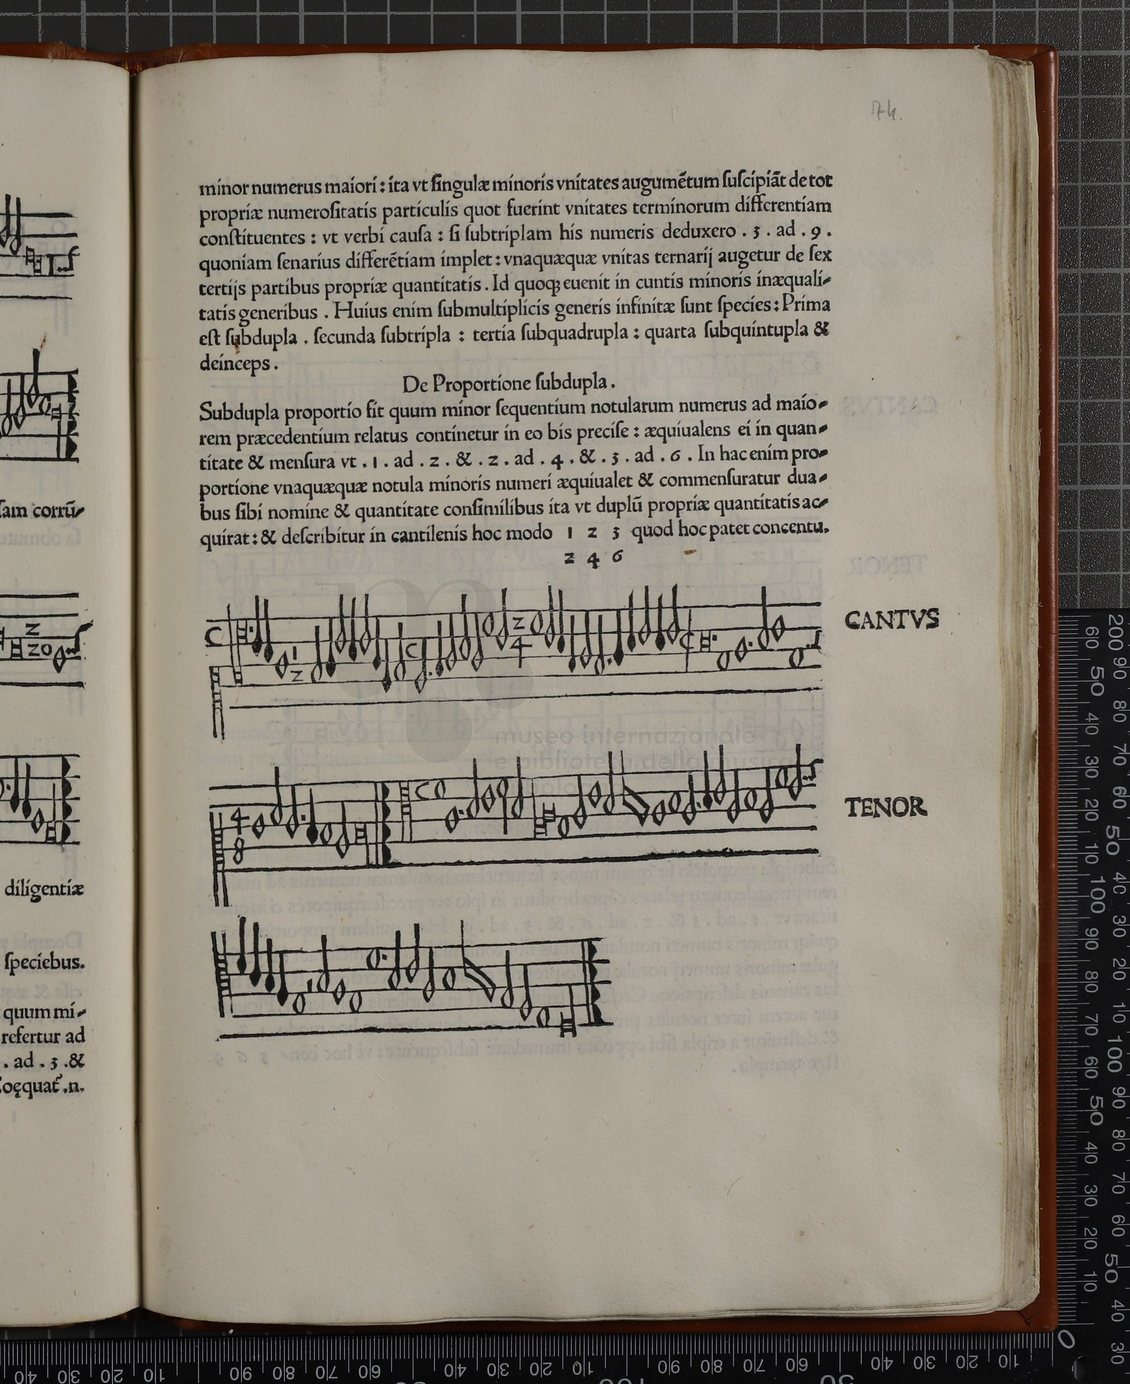 74.
minor numerus maiori : ita vt ſingulæ minoris vnitates augumētum ſuſcipiāt de tot
propriæ numeroſitatis particulis quot fuerint vnitates terminorum differentiam
conſtituentes : vt verbi cauſa : ſi ſubtriplam his numeris deduxero . 3 . ad . 9 .
quoniam ſenarius differētiam implet : vnaquæquæ vnitas ternarij augetur de ſex
tertijs partibus propriæ quantitatis . Id quoqꝫ euenit in cuntis minoris inæquali-
tatis generibus . Huius enim ſubmultiplicis generis infinitæ ſunt ſpecies : Prima
eſt ſubdupla . ſecunda ſubtripla : tertia ſubquadrupla : quarta ſubquintupla &
deinceps .
De Proportione ſubdupla .
Subdupla proportio fit quum minor ſequentium notularum numerus ad maio-
rem præcedentium relatus continetur in eo bis preciſe : æquiualens ei in quan-
titate & menſura vt . 1 . ad . 2 . & . 2 . ad . 4 . & . 3 . ad . 6 . In hac enim pro-
portione vnaquæquæ notula minoris numeri æquiualet & commenſuratur dua-
bus ſibi nomine & quantitate conſimilibus ita vt duplū propriæ quantitatis ac-
quirat : & deſcribitur in cantilenis hoc modo 1 2 3 quod hoc patet concentu.
2 4 6
CANTVS
1 2
2 4
TENOR
4
8
museo internazionale
e biblioteca della musica
ſam corrū-
diligentiæ
ſpeciebus.
quum mi-
refertur ad
. ad . 3 . &